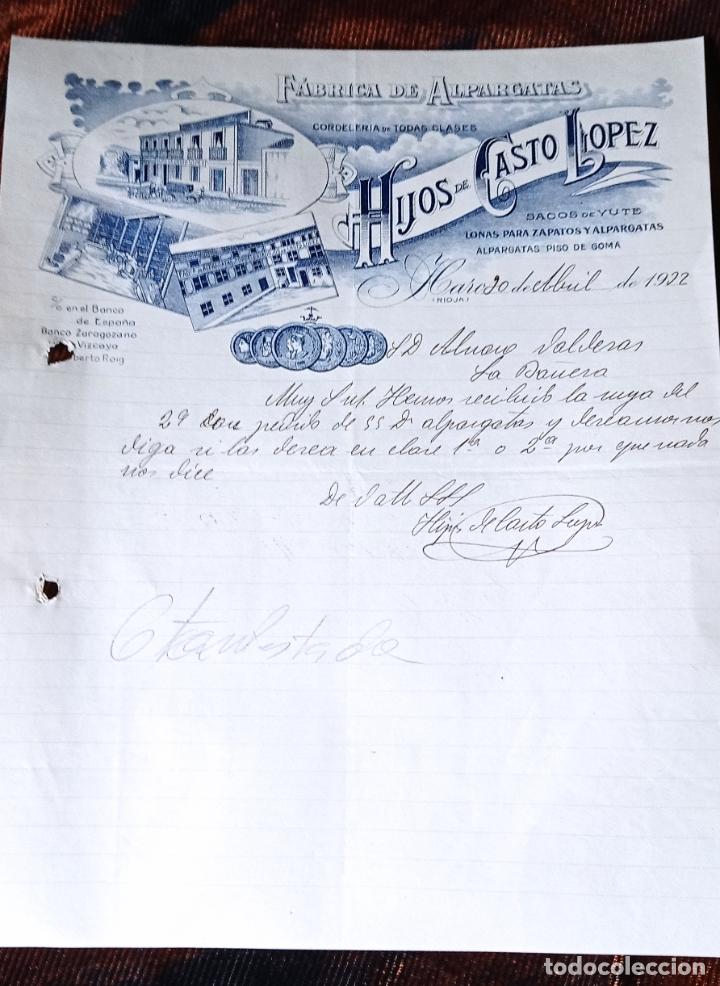 FÁBRICA DE ALPARGATAS
CORDELERIA DE TODAS CLASES
HIJOS DE CASTO LOPEZ
SACOS DE YUTE
LONAS PARA ZAPATOS Y ALPARGATAS
ALPARGATAS PISO DE GOMA
Haro 20 de Abril de 1922
(RIOJA)
C/c en el Banco
de España
Banco Zaragozano
Vizcaya
berto Roig
S D Alvaro Valderas
La Bañeza
Muy Sr nt. Hemos recibido la suya del
29 con pedido de 55 Ds alpargatas y deseamos nos
diga si las desea en clase 1ª o 2ª por que nada
nos dice
De V att SSS
Hijos de Casto Lopez
Contestada
todocoleccion